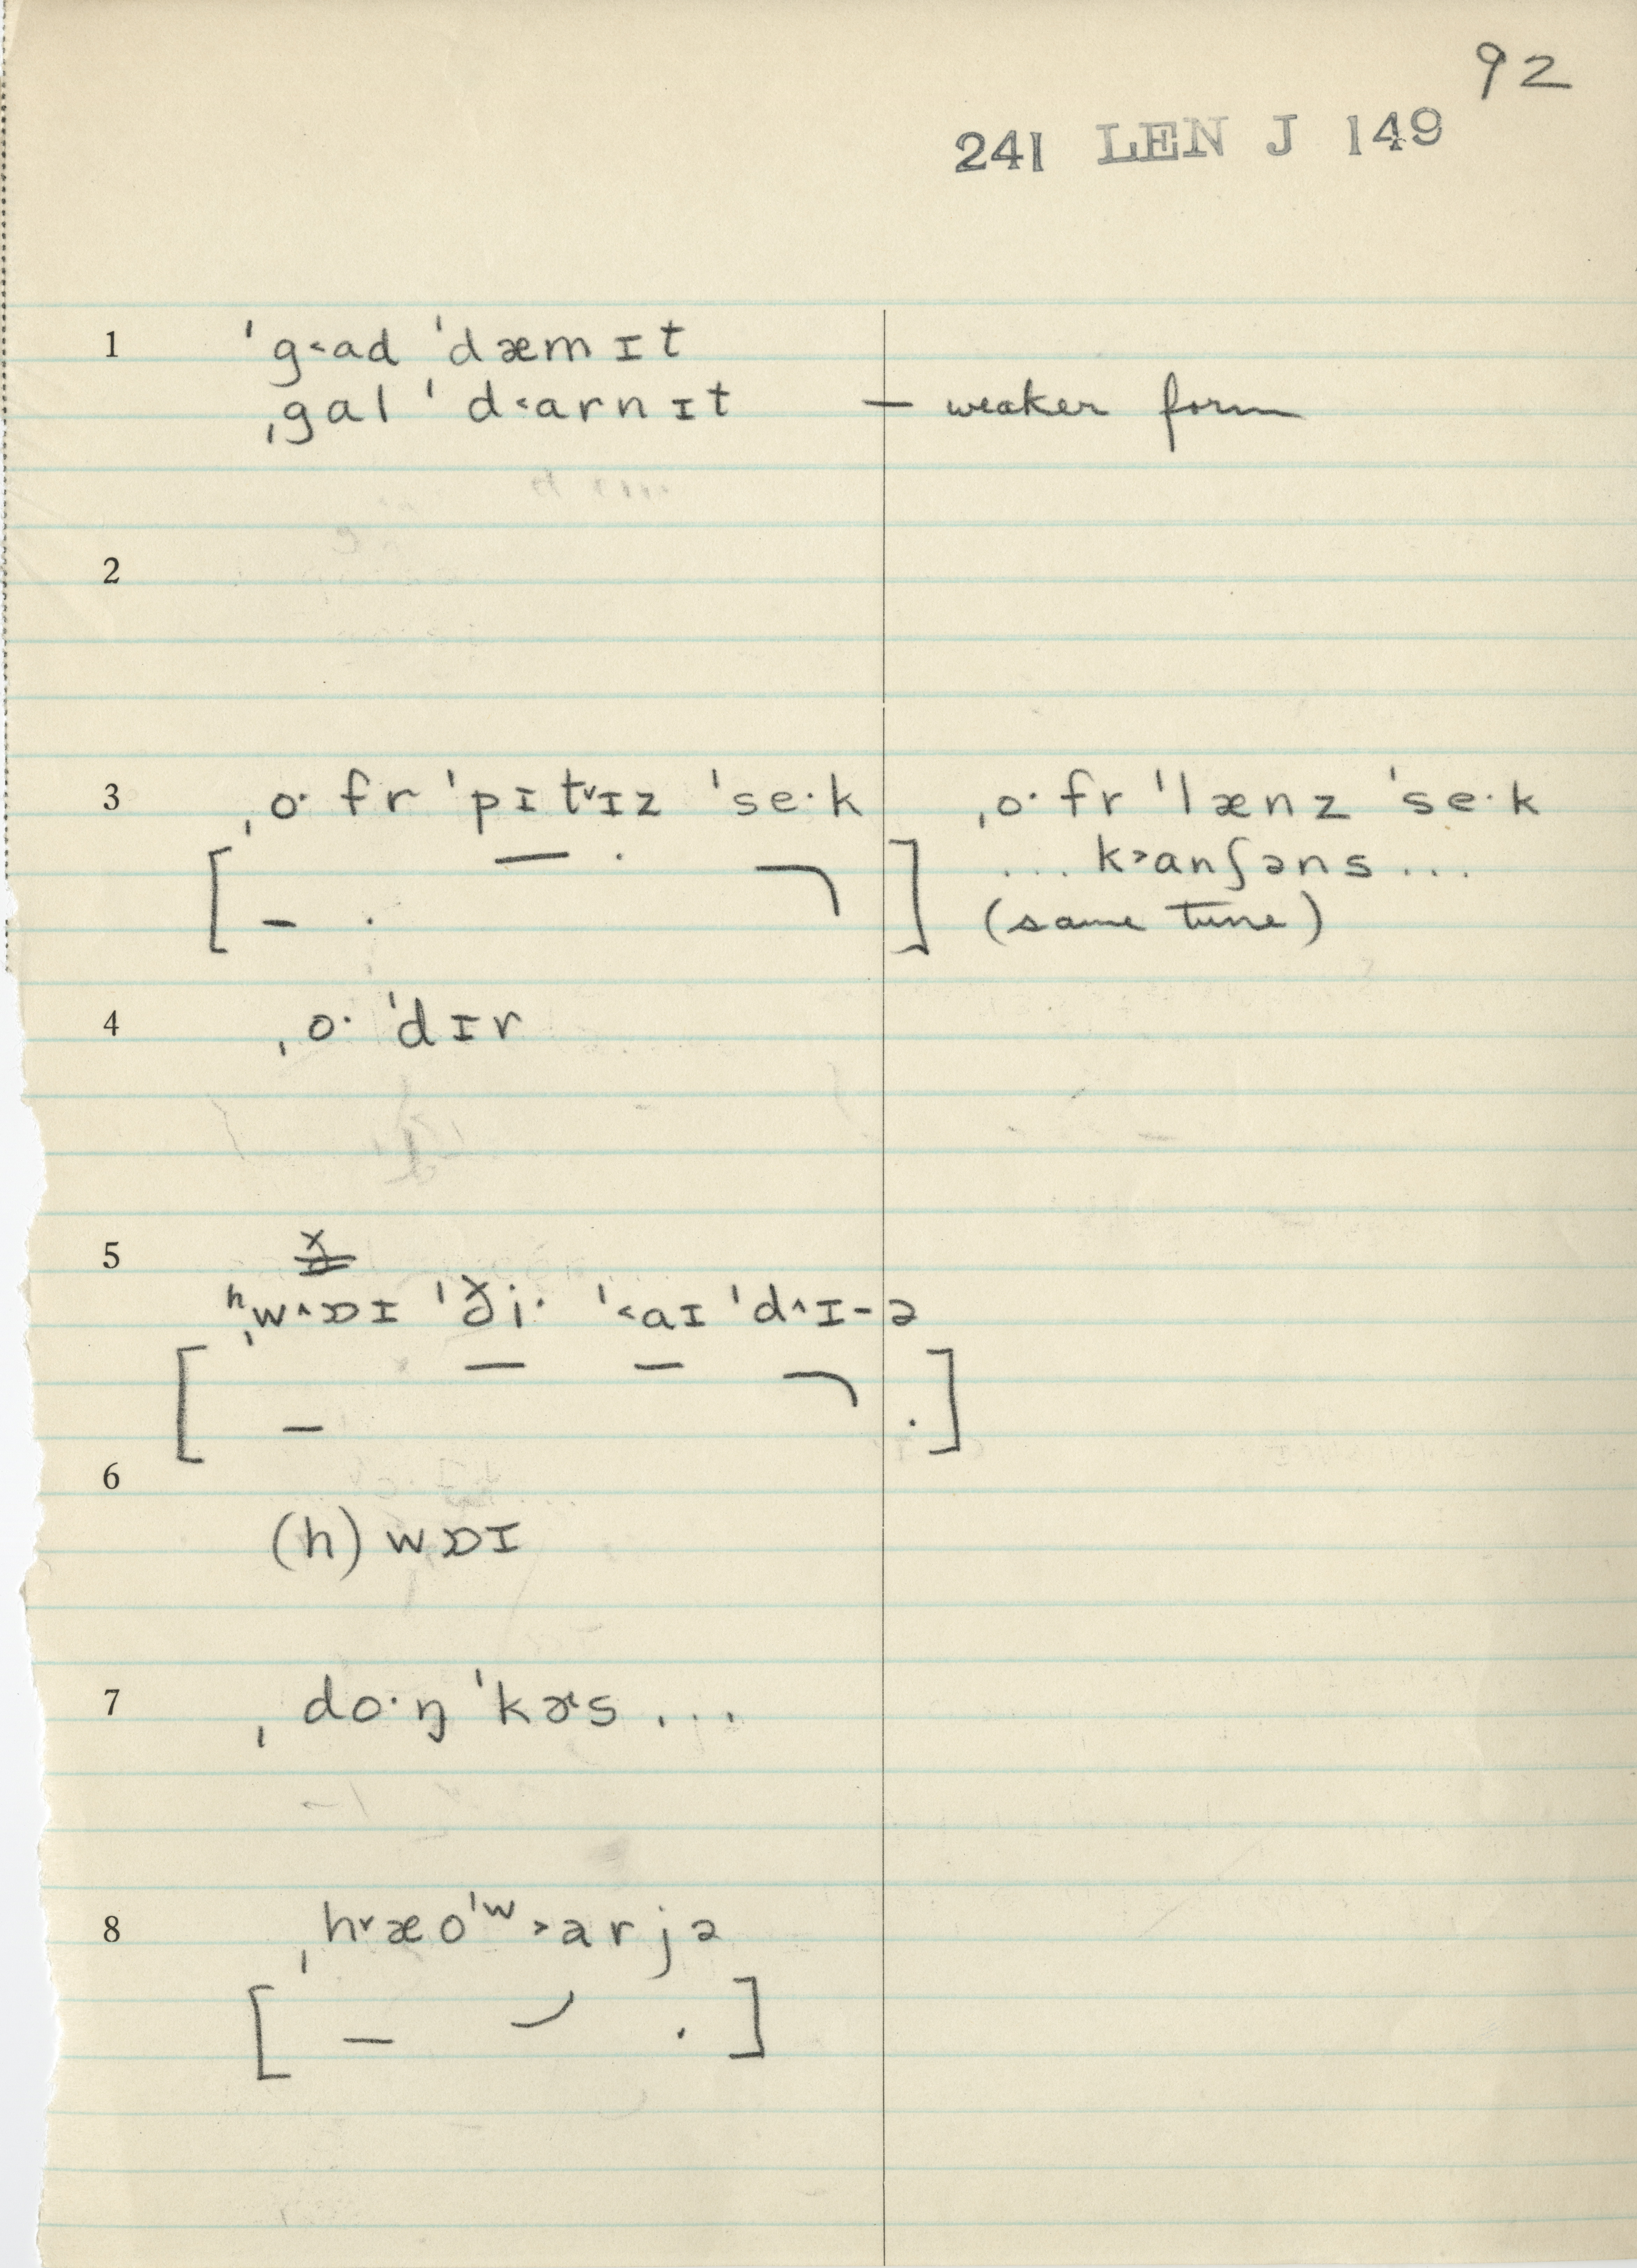 92
241 LEN J 149
1 ˈg˂ad ˈdæmɪt
ˌgal ˈd˂arnɪt — weaker form
2
3 ˌo· fr ˈpɪt˅ɪz ˈse·k ˌo· fr ˈlænz ˈse·k
... k˃anʃəns ...
(same tune)
4 ˌo· ˈdɪr
5
ʰˌw˄ɒɪ ˈði· ˈ˂aɪ ˈd˄ɪ-ə
6
(h)wɒɪ
7 ˌdo·ŋ ˈkɚs ...
8 ˌh˅æoˈʷ˃arjə